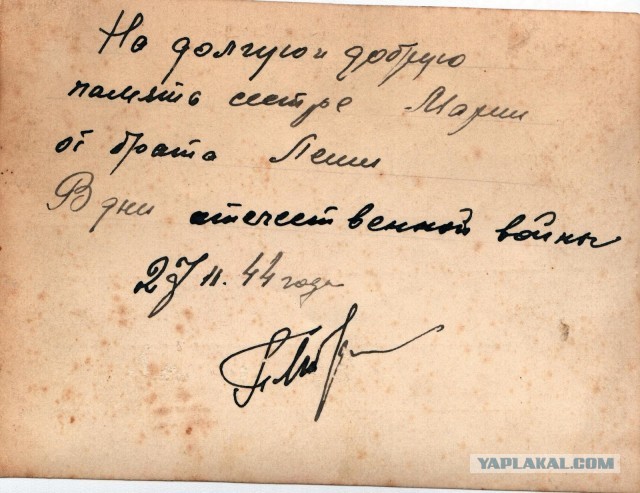 На долгую и добрую
память сестре Марии
от брата Лени
В дни отечественной войны
27/II. 44 года
YAPLAKAL.COM